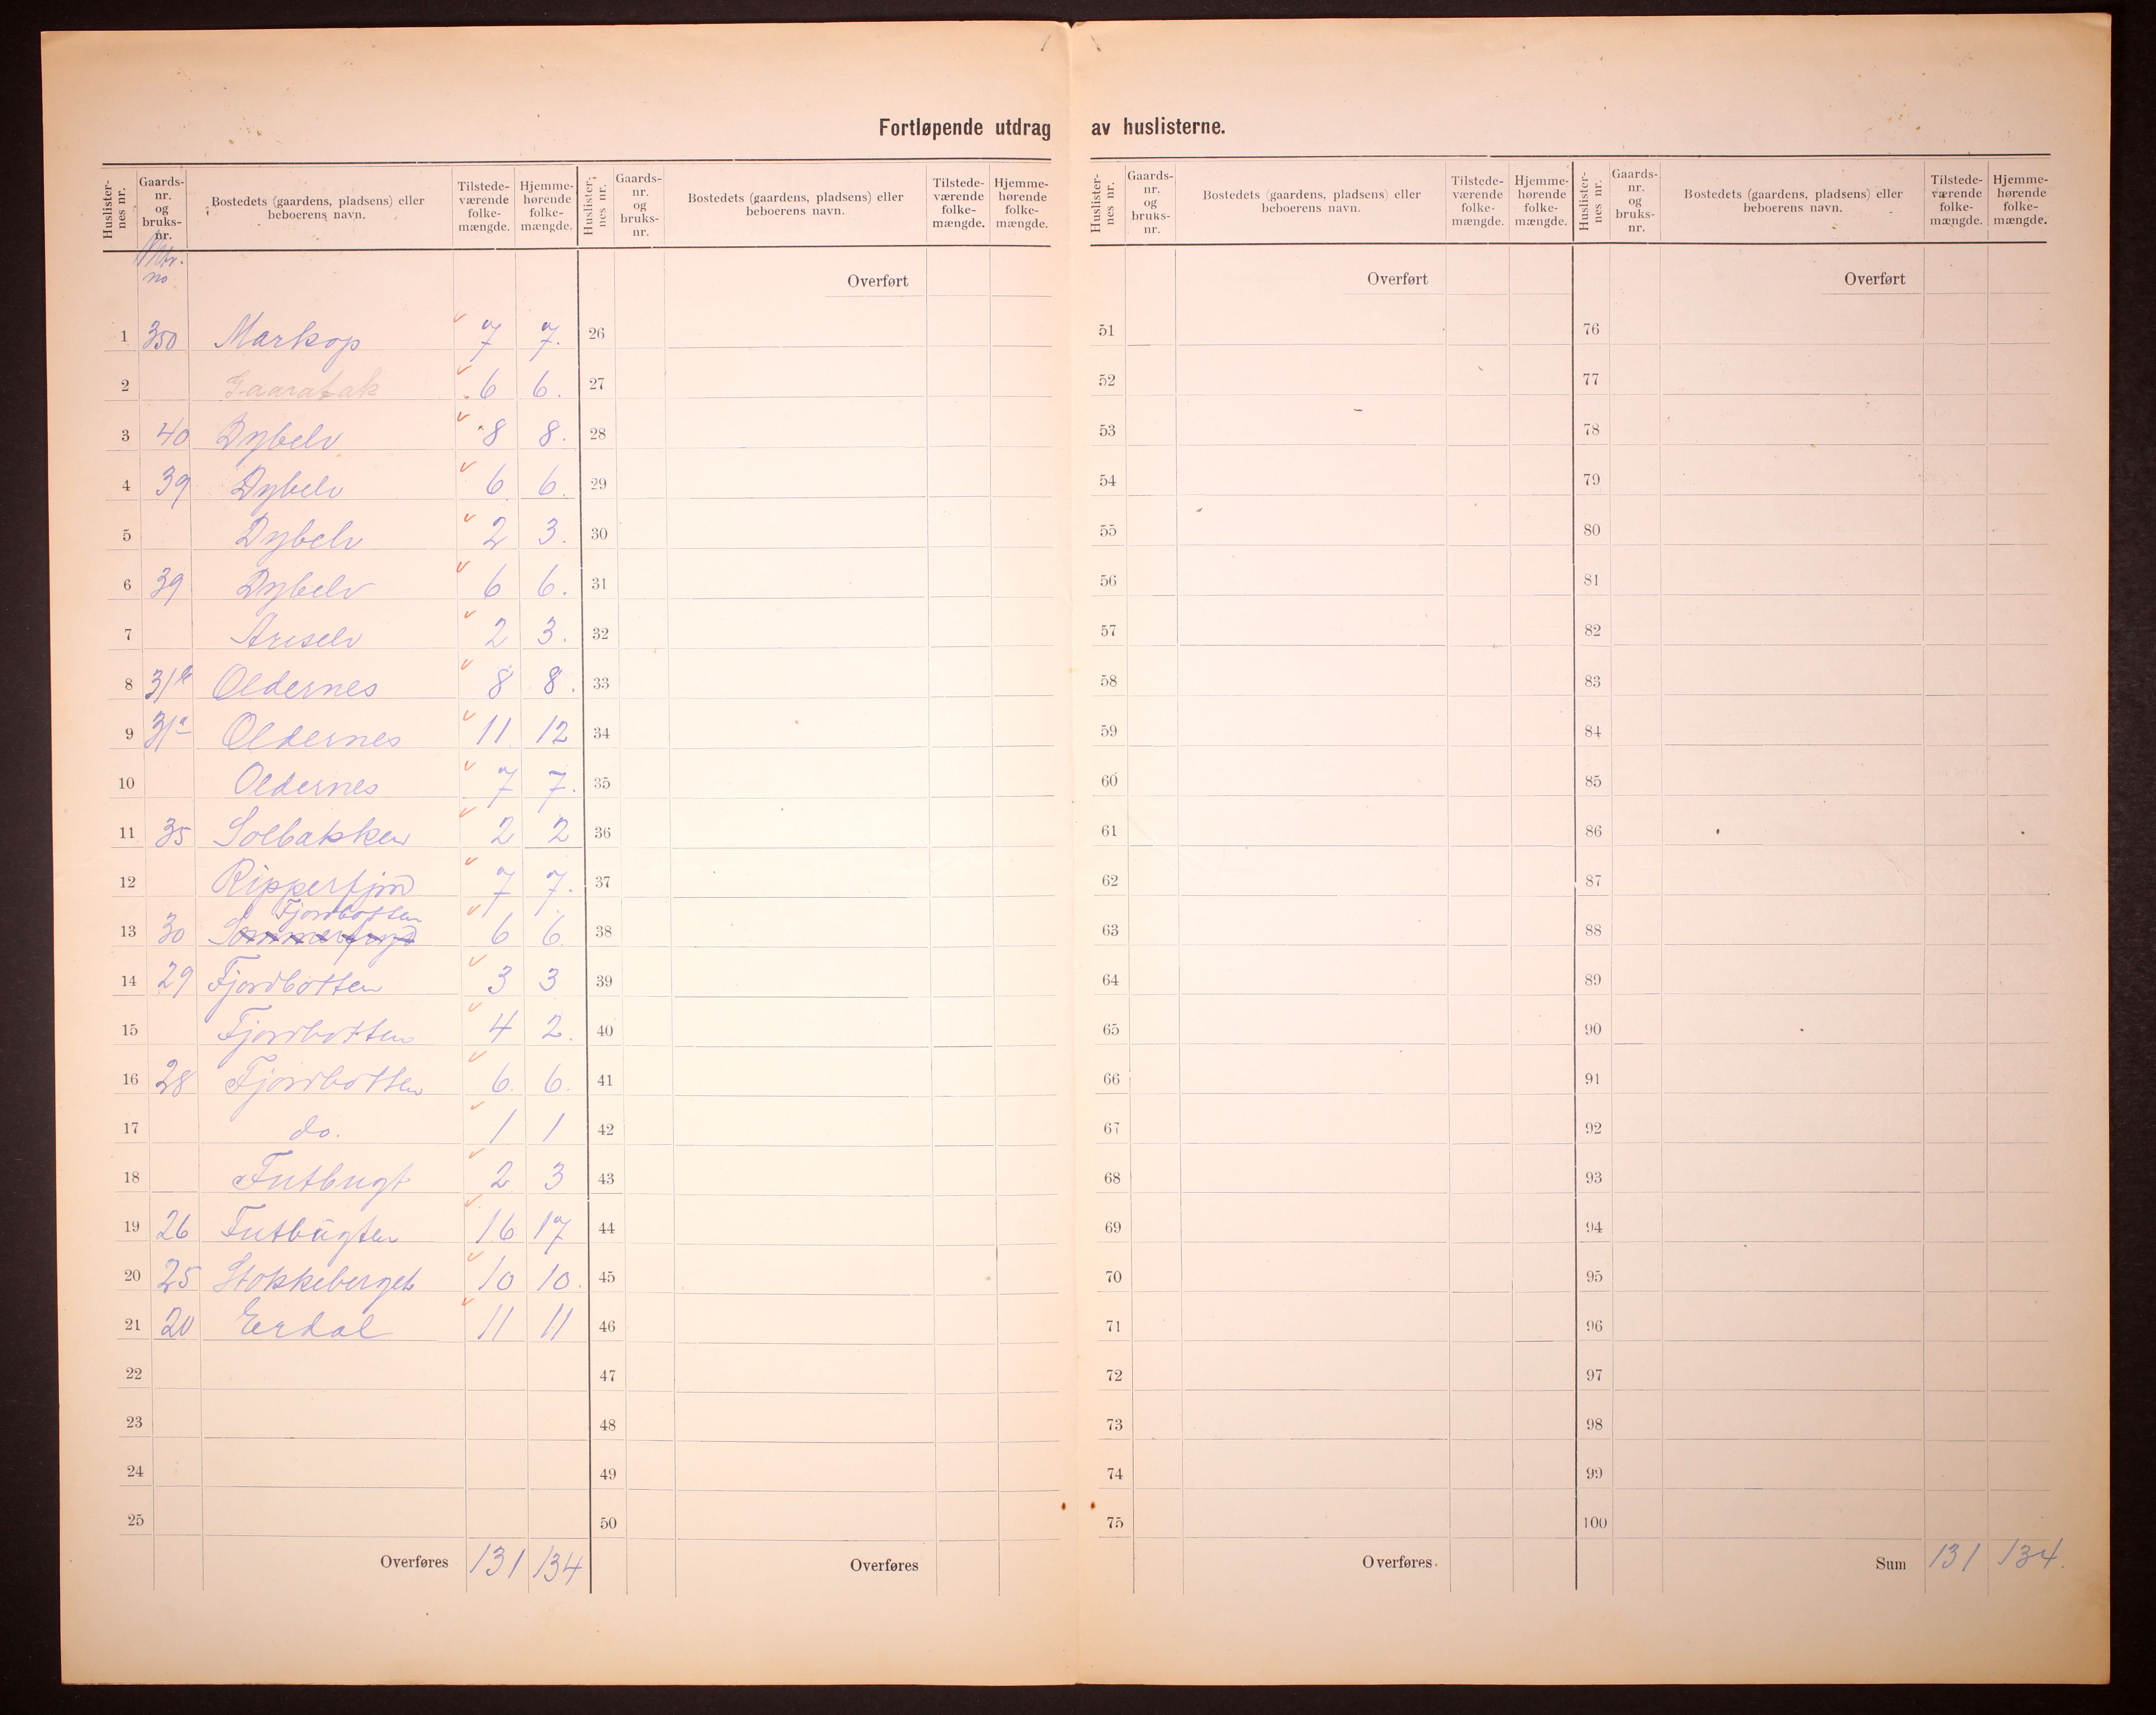 Fortløpende utdrag av huslisterne.
Huslisternes nr. Gaards-nr. og bruks-nr. Bostedets (gaardens, pladsens) eller beboerens navn. Tilstedeværende folkemængde. Hjemmehørende folkemængde.
Mtr. no
1 350 Markop 7 7.
2 Gaaratak 6 6.
3 40 Dybelv 8 8.
4 39 Dybelv 6 6.
5 Dybelv 2 3.
6 39 Dybelv 6 6.
7 Areselv 2 3.
8 31b Oldernes 8 8.
9 31a Oldernes 11 12
10 Oldernes 7 7.
11 35 Solbakken 2 2
12 Ripperfjord 7 7.
13 30 Fjordbotten 6 6
14 29 Fjordbotten 3 3
15 Fjordbotten 4 2.
16 28 Fjordbotten 6. 6.
17 do. 1 1
18 Futbugt 2 3
19 26 Futbugten 16 17
20 25 Stokkeberget 10 10.
21 20 Eerdal 11 11
22
23
24
25
Overføres 131 134
Huslisternes nr. Gaards-nr. og bruks-nr. Bostedets (gaardens, pladsens) eller beboerens navn. Tilstedeværende folkemængde. Hjemmehørende folkemængde.
Overført
26
27
28
29
30
31
32
33
34
35
36
37
38
39
40
41
42
43
44
45
46
47
48
49
50
Overføres
Huslisternes nr. Gaards-nr. og bruks-nr. Bostedets (gaardens, pladsens) eller beboerens navn. Tilstedeværende folkemængde. Hjemmehørende folkemængde.
Overført
51
52
53
54
55
56
57
58
59
60
61
62
63
64
65
66
67
68
69
70
71
72
73
74
75
Overføres
Huslisternes nr. Gaards-nr. og bruks-nr. Bostedets (gaardens, pladsens) eller beboerens navn. Tilstedeværende folkemængde. Hjemmehørende folkemængde.
Overført
76
77
78
79
80
81
82
83
84
85
86
87
88
89
90
91
92
93
94
95
96
97
98
99
100
Sum 131 134.